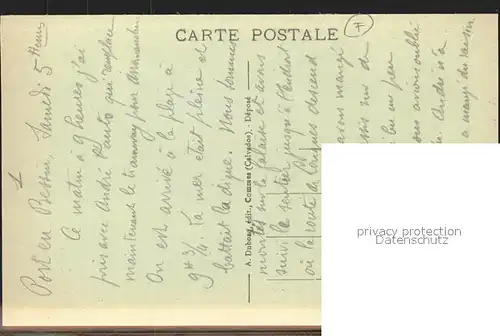 CARTE POSTALE
Port en Bessin, Samedi 5 Heures
Ce matin à 9 heures j'ai
pris avec André l'auto qui remplace
maintenant le tramway pour
On est arrivé à la plage à
9H 3/4. La mer était pleine et
battait la digue. Nous sommes
A. Dubosq, édit., Commes (Calvados). - Déposé
montés sur la falaise et avons
suivi le sentier jusqu'à l'endroit
où la route de Longues descend
avons mangé
assis sur
bu un peu
nous avions oublié
André n'a
a mangé du raisin
privacy watermark
privacy watermark